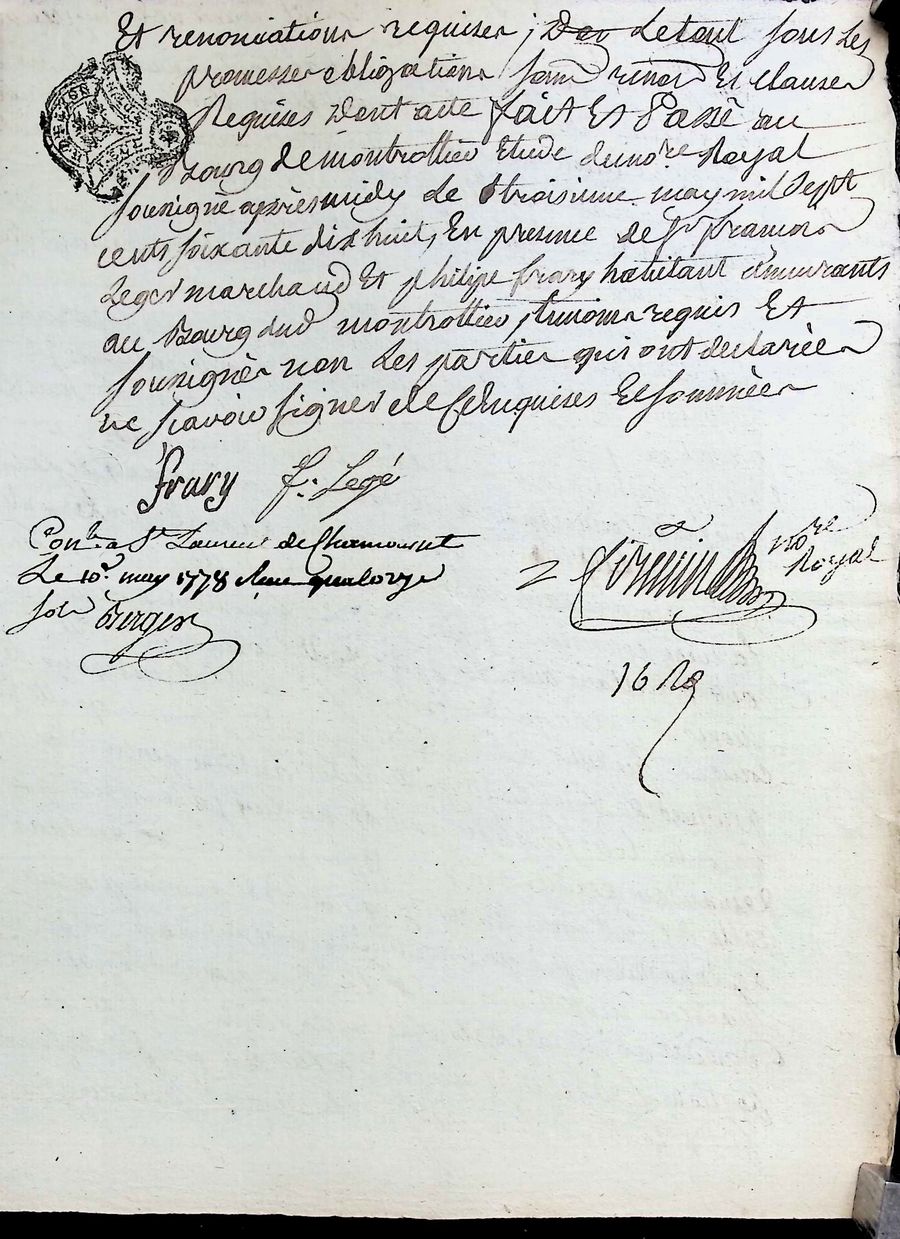 Et renonciations requises ; De tout sous Les
promesses obligations soumd renond Et clauses
Requises Dont acte fait Et Passé au
Bourg de montrottier Etude du nore Royal
sousigné après midy Le troisieme may mil sept
cents soixante dix huit, En presence de Sr francois
Leger marchand Et philipe frary habitant demeurants
au Bourg dud montrottier, temoins requis Et
sousignès non Les parties qui ont declarèes
ne sçavoir signer de ce Enquises Et sommèes
frary f. Legé
Conle a St Laurent de Chamousset
Le 10e may 1778 Reçu quatorze
sols Berger
nore
Royal
16 Rg